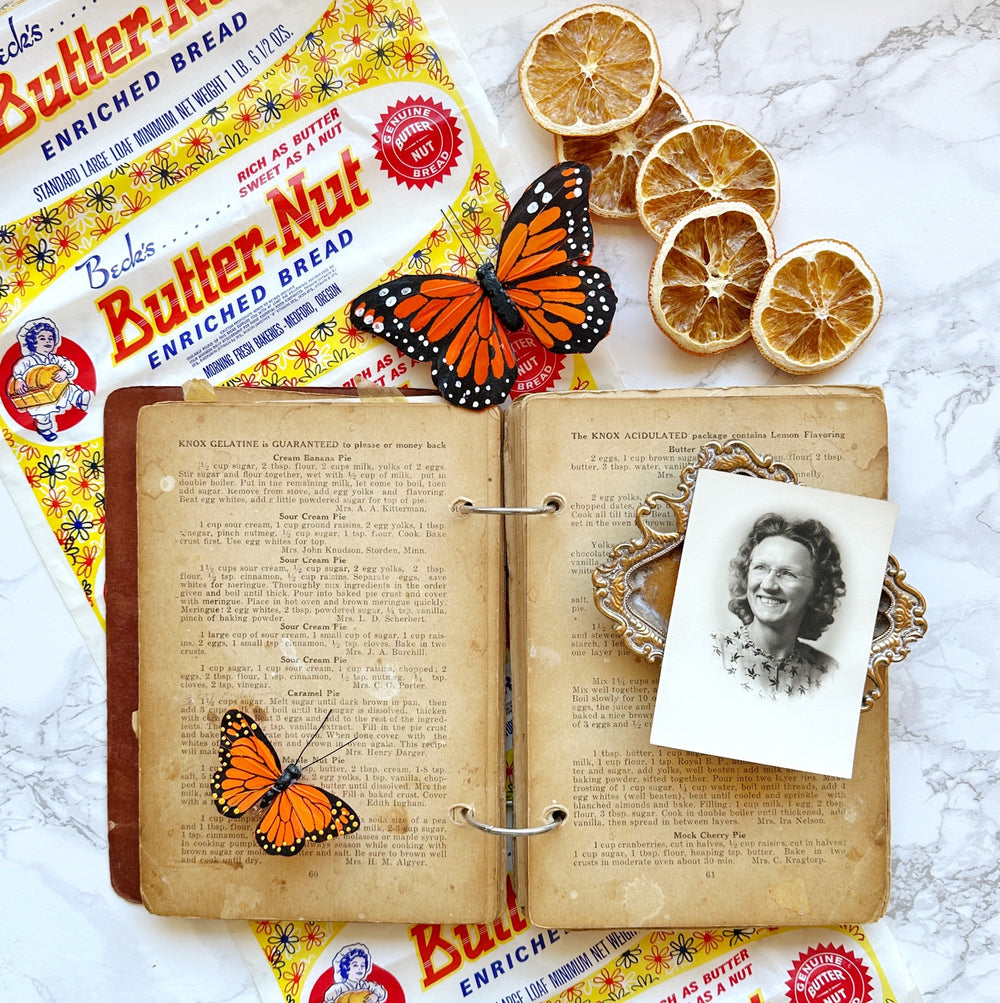 Beck's
Butter-Nut
ENRICHED BREAD
STANDARD LARGE LOAF MINIMUM NET WEIGHT 1 LB. 6 1/2 OZS.
RICH AS BUTTER
SWEET AS A NUT
GENUINE
BUTTER
NUT
BREAD
Beck's
Butter-Nut
ENRICHED BREAD
MORNING FRESH BAKERIES - MEDFORD, OREGON
RICH AS
SWEET AS A
BREAD
KNOX GELATINE is GUARANTEED to please or money back
Cream Banana Pie
½ cup sugar, 2 tbsp. flour, 2 cups milk, yolks of 2 eggs.
Stir sugar and flour together, wet with ½ cup of milk, put in
double boiler. Put in the remaining milk, let come to boil, then
add sugar. Remove from stove, add egg yolks and flavoring.
Beat egg whites, add a little powdered sugar for top of pie.
Mrs. A. A. Kitterman.
Sour Cream Pie
1 cup sour cream, 1 cup ground raisins, 2 egg yolks, 1 tbsp.
vinegar, pinch nutmeg, ½ cup sugar, 1 tsp. flour, Cook. Bake
crust first. Use egg whites for top.
Mrs. John Knudson, Storden, Minn.
Sour Cream Pie
1½ cups sour cream, ½ cup sugar, 2 egg yolks, 2 tbsp.
flour, ½ tsp. cinnamon, ½ cup raisins. Separate eggs, save
whites for meringue. Thoroughly mix ingredients in the order
given and boil until thick. Pour into baked pie crust and cover
with meringue. Place in hot oven and brown meringue quickly.
Meringue: 2 egg whites, 2 tbsp. powdered sugar, ¼ tsp. vanilla,
pinch of baking powder. Mrs. L. D. Scherbert.
Sour Cream Pie
1 large cup of sour cream, 1 small cup of sugar, 1 cup rais-
ins, 2 eggs, 1 small tsp. cinnamon, ½ tsp. cloves. Bake in two
crusts. Mrs. J. A. Burchill.
Sour Cream Pie
1 cup sugar, 1 cup sour cream, 1 cup raisins, chopped; 2
eggs, 1 tbsp. flour, 1 tsp. cinnamon, ½ tsp. nutmeg, ½ tsp.
cloves, 2 tsp. vinegar. Mrs. C. G. Porter.
Caramel Pie
1½ cups sugar. Melt sugar until dark brown in pan, then
add 3 cups milk and boil until the sugar is dissolved, thicken
with cornstarch. Beat 3 eggs and add to the rest of the ingred-
ients. tsp. vanilla extract. Fill in the pie crust
and bake hot oven. When one cover with the
whites of and brown in oven again. This recipe
will make Mrs. Henry Darger.
Maple Nut Pie
cup butter, 2 tbsp. cream, 1-8 tsp.
salt, 5 2 egg yolks, 1 tsp. vanilla, chop-
ped nuts and butter until dissolved. Mix the
Fill a baked crust. Cover
with a Edith Ingham.
1 cup pumpkin soda size of pea
and 1 tbsp. flour, milk, 2-3 cup sugar,
1 tsp. cinnamon, molasses or maple syrup.
In cooking pumpkin always season while cooking with
brown sugar or molasses butter and salt. Be sure to brown well
and cook until dry. Mrs. H. M. Algyer.
60
The KNOX ACIDULATED package contains Lemon Flavoring
Butter
2 eggs, 1 cup brown sugar
butter, 3 tbsp. water, vanilla
2 egg yolks,
chopped dates,
Cook all till thick. Beat
set in the oven to brown.
Yolks
chocolate
vanilla,
whites
salt,
pie.
1½
and stewed
starch, 1
one layer pie
Mix 1½ cups
Mix well together, a
Boil slowly for 10
eggs, the juice and
baked a nice brown
of 3 eggs and ½
1 tbsp. butter, 1 cup sugar
milk, 1 cup flour, 1 tsp. Royal B. P.
ter and sugar, add yolks, well beaten; add milk
baking powder, sifted together. Pour into two layer tins. Make
frosting of 1 cup sugar, ¼ cup water, boil until threads, add
egg whites (well beaten), beat until cooled and sprinkle with
blanched almonds and bake. Filling: 1 cup milk, 1 egg, 2 tbsp.
flour, 3 tbsp. sugar. Cook in double boiler until thickened, add
vanilla, then spread in between layers. Mrs. Ira Nelson.
Mock Cherry Pie
1 cup cranberries, cut in halves, ½ cup raisins, cut in halves;
1 cup sugar, 1 tbsp. flour, heaping tsp. butter. Bake in two
crusts in moderate oven about 30 min. Mrs. C. Kragtorp.
61
Butter-Nut
ENRICHED
STANDARD LARGE LOAF MINIMUM NET WEIGHT
RICH AS BUTTER
SWEET AS A NUT
GENUINE
BUTTER
NUT